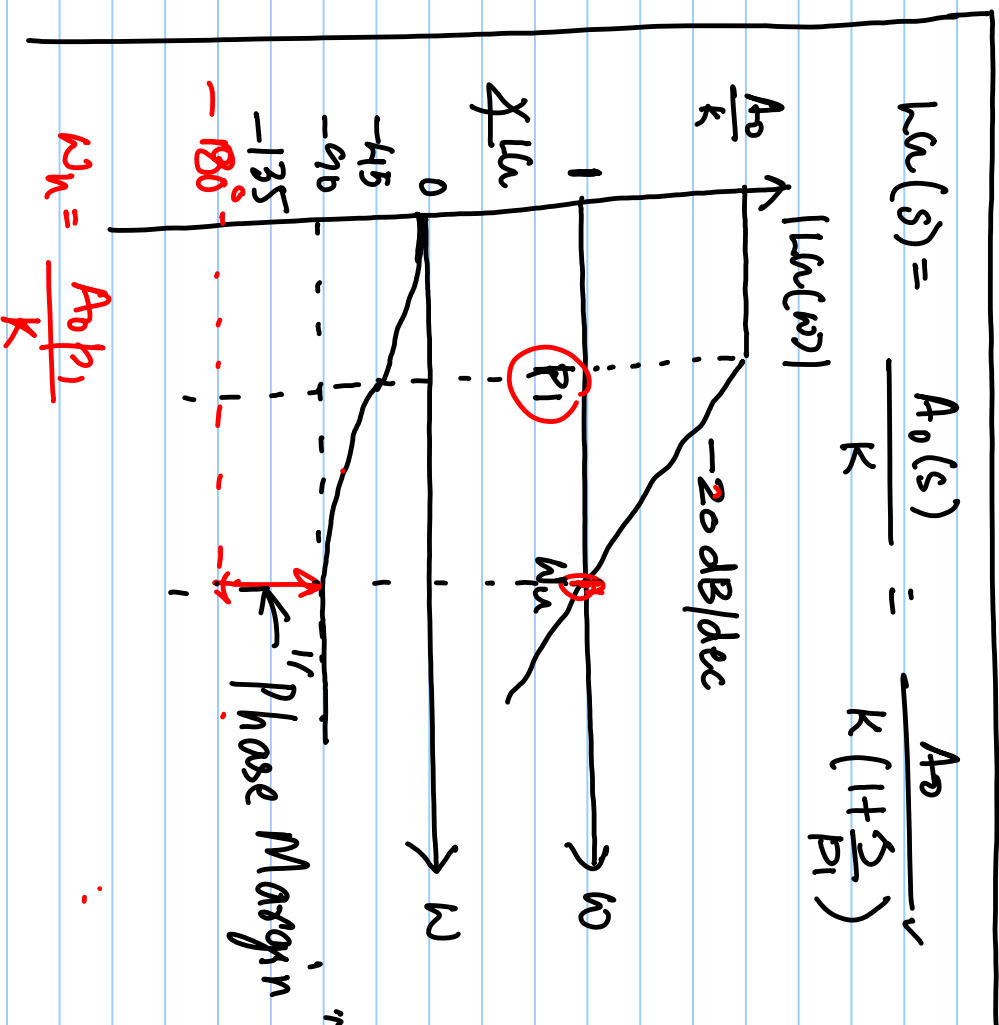 LG(s) = A₀(s)/K = A₀/K(1+s/p₁)
|LG(ω)|
A₀/K
-20 dB/dec
1
p₁
ωu
ω
∠LG
0
ω
-45
-90
-135
-180°
"Phase Margin"
ωu = A₀p₁/K